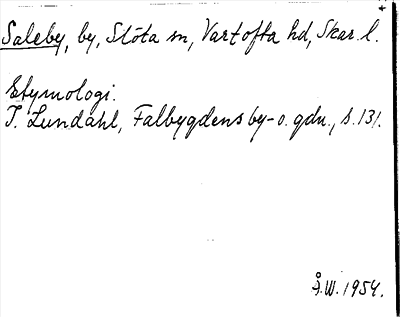 Saleby, by, Slöta sn, Vartofta hd, Skar. l.
Etymologi.
I. Lundahl, Falbygdens by- o. gdn., s. 131.
Å.W. 1954.